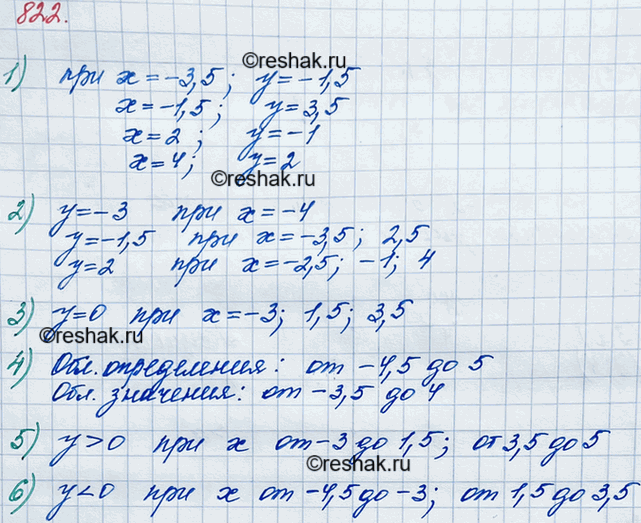 822.
©reshak.ru
1) при x = -3,5; y = -1,5
x = -1,5; y = 3,5
x = 2; y = -1
x = 4; y = 2
©reshak.ru
2) y = -3 при x = -4
y = -1,5 при x = -3,5; 2,5
y = 2 при x = -2,5; -1; 4
3) y = 0 при x = -3; 1,5; 3,5
©reshak.ru
4) Обл. определения: от -4,5 до 5
Обл. значения: от -3,5 до 4
5) y > 0 при x от -3 до 1,5; от 3,5 до 5
©reshak.ru
6) y < 0 при x от -4,5 до -3; от 1,5 до 3,5